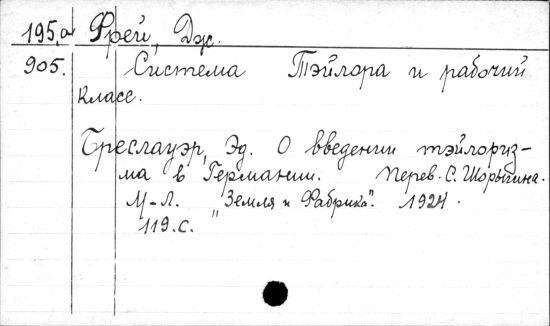 195,а Фрей, Дж.
905. Система Тэйлора и рабочий
класс.
Бреслауэр, Эд. О введении тэйлориз-
ма в Германии. Перев. С. Шорыгина.
М-Л. "Земля и Фабрика". 1924.
119.с.